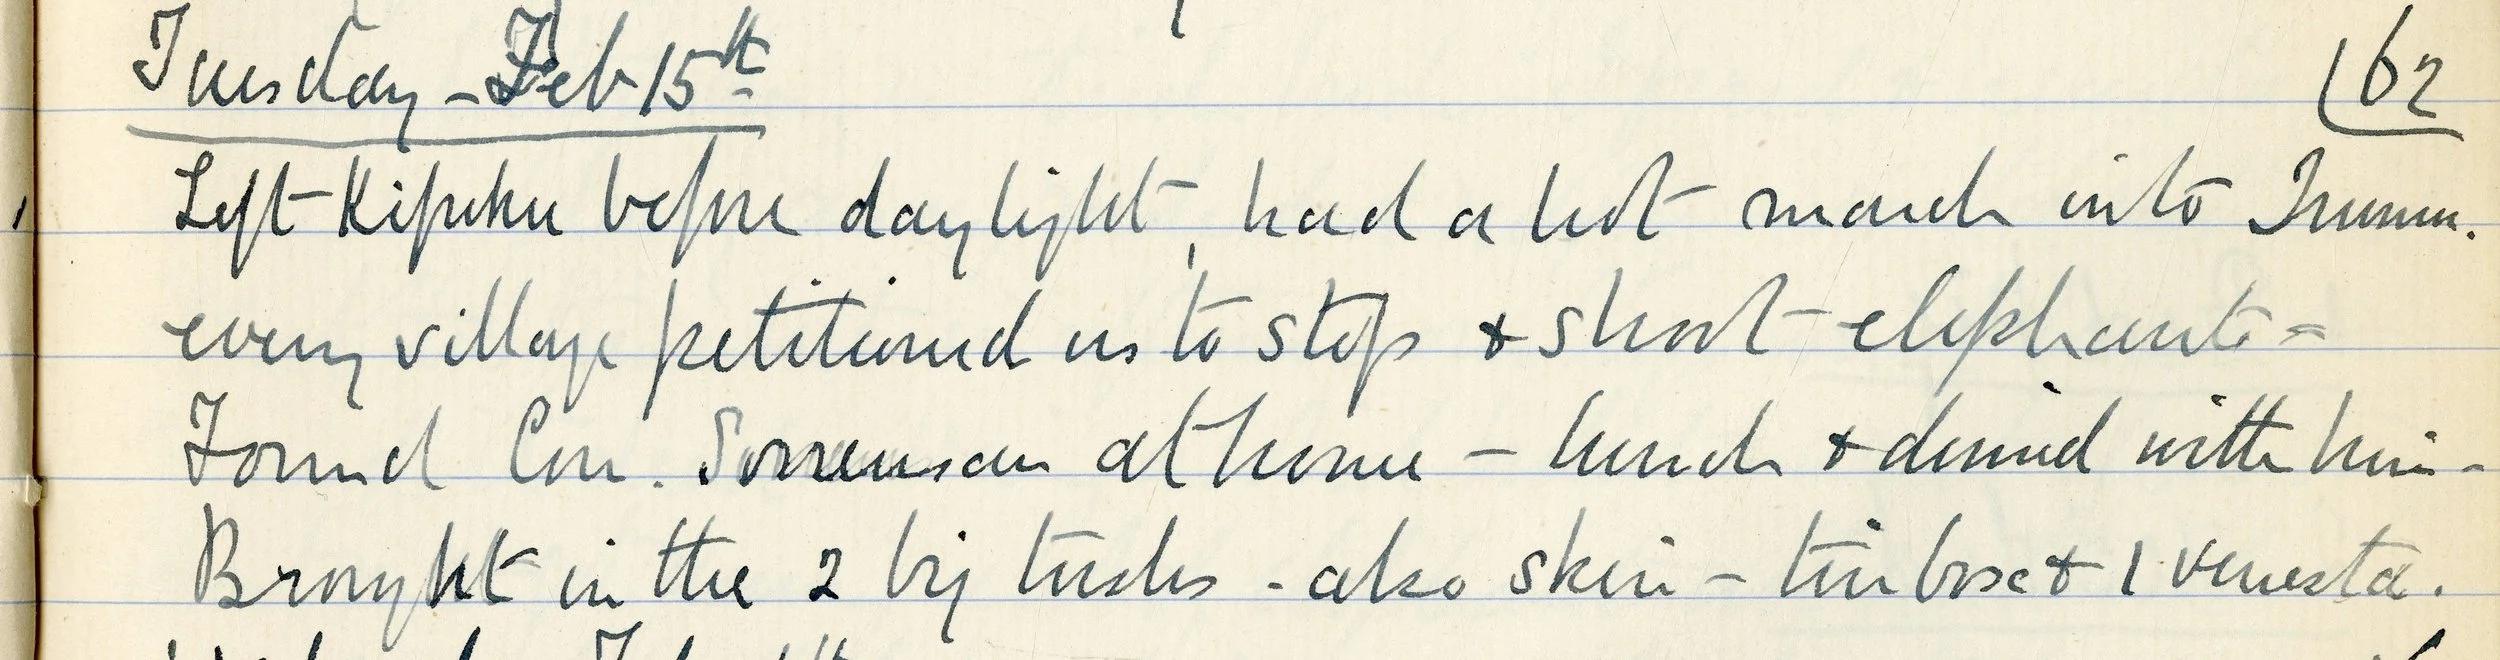 Tuesday - Feb 15th
162
Left Kifuku before daylight, had a hot march into Irumu.
every village petitioned us to stop & shoot elephants -
Found Com. Sorrensen at home - lunch & dined with him -
Brought in the 2 big tusks - also skin - tin box & 1 venesta.